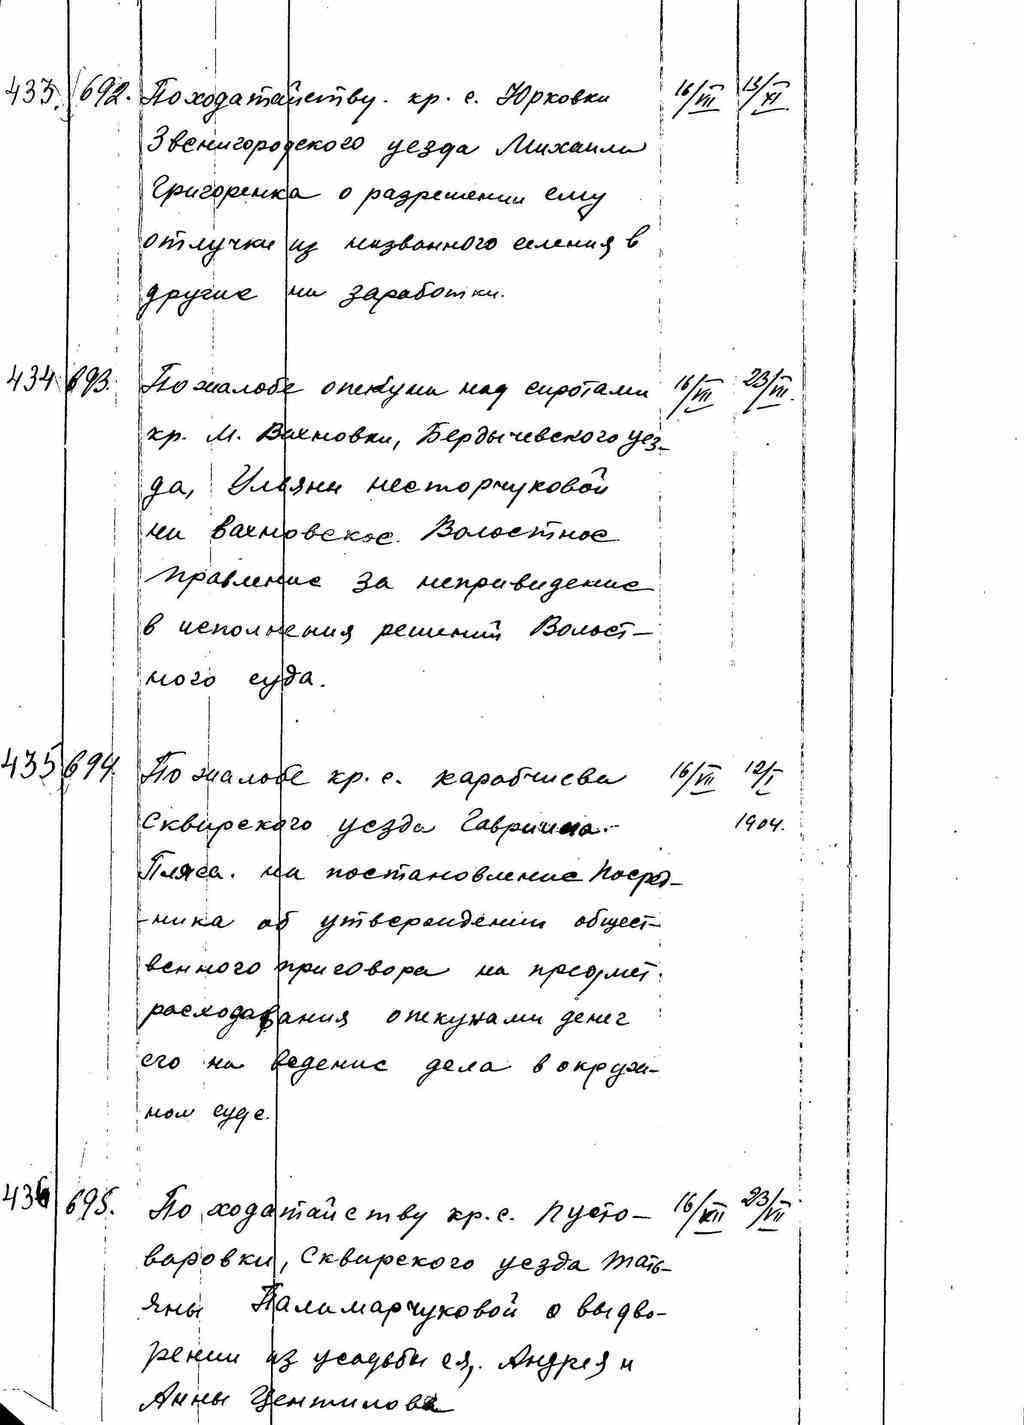 433. 692. По ходатайству. кр. с. Юрковки 16/VII 13/XI
Звенигородского уезда Михаила
Григоренка о разрешении ему
отлучки из названного селения в
другие на заработки.
434 693. По жалобе опекуна над сиротами 16/VII 23/VII.
кр. м. Вахновки, Бердычевского уез-
да, Ульяны Несторчуковой
на Вахновское Волостное
Правление за неприведение
в исполнения решений Волост-
ного суда.
435 694. По жалобе кр. с. Карабчиева 16/VII 12/I
Сквирского уезда Гавриила 1904.
Пляса. на постановление Посред-
ника об утверждении общест-
венного приговора на предмет
расходавания опекунами денег
его на ведение дела в окруж-
ном суде.
436 695. По ходатайству кр. с. Пусто- 16/VII 23/VII
варовки, Сквирского уезда Тать-
яны Паламарчуковой о выдво-
рении из усадьбы ея, Андрея и
Анны